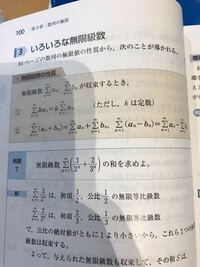 100 第3章 数列の極限
3 いろいろな無限級数
84ページの数列の極限値の性質から，次のことが導かれる。
無限級数の性質
∑aₙ, ∑bₙ が収束するとき，
① ∑kaₙ = k∑aₙ （ただし，k は定数）
② ∑(aₙ+bₙ) = ∑aₙ + ∑bₙ, ∑(aₙ−bₙ) = ∑aₙ −
例題 7 無限級数 ∑(3/2ⁿ + 2/3ⁿ) の和を求めよ。
解 ∑3/2ⁿ は，初項 3/2，公比 1/2 の無限等比級数
∑2/3ⁿ は，初項 2/3，公比 1/3 の無限等比級数
で，公比の絶対値がともに1より小さいから，これら2つの
級数は収束する。
よって，与えられた無限級数も収束して，その和Sは，